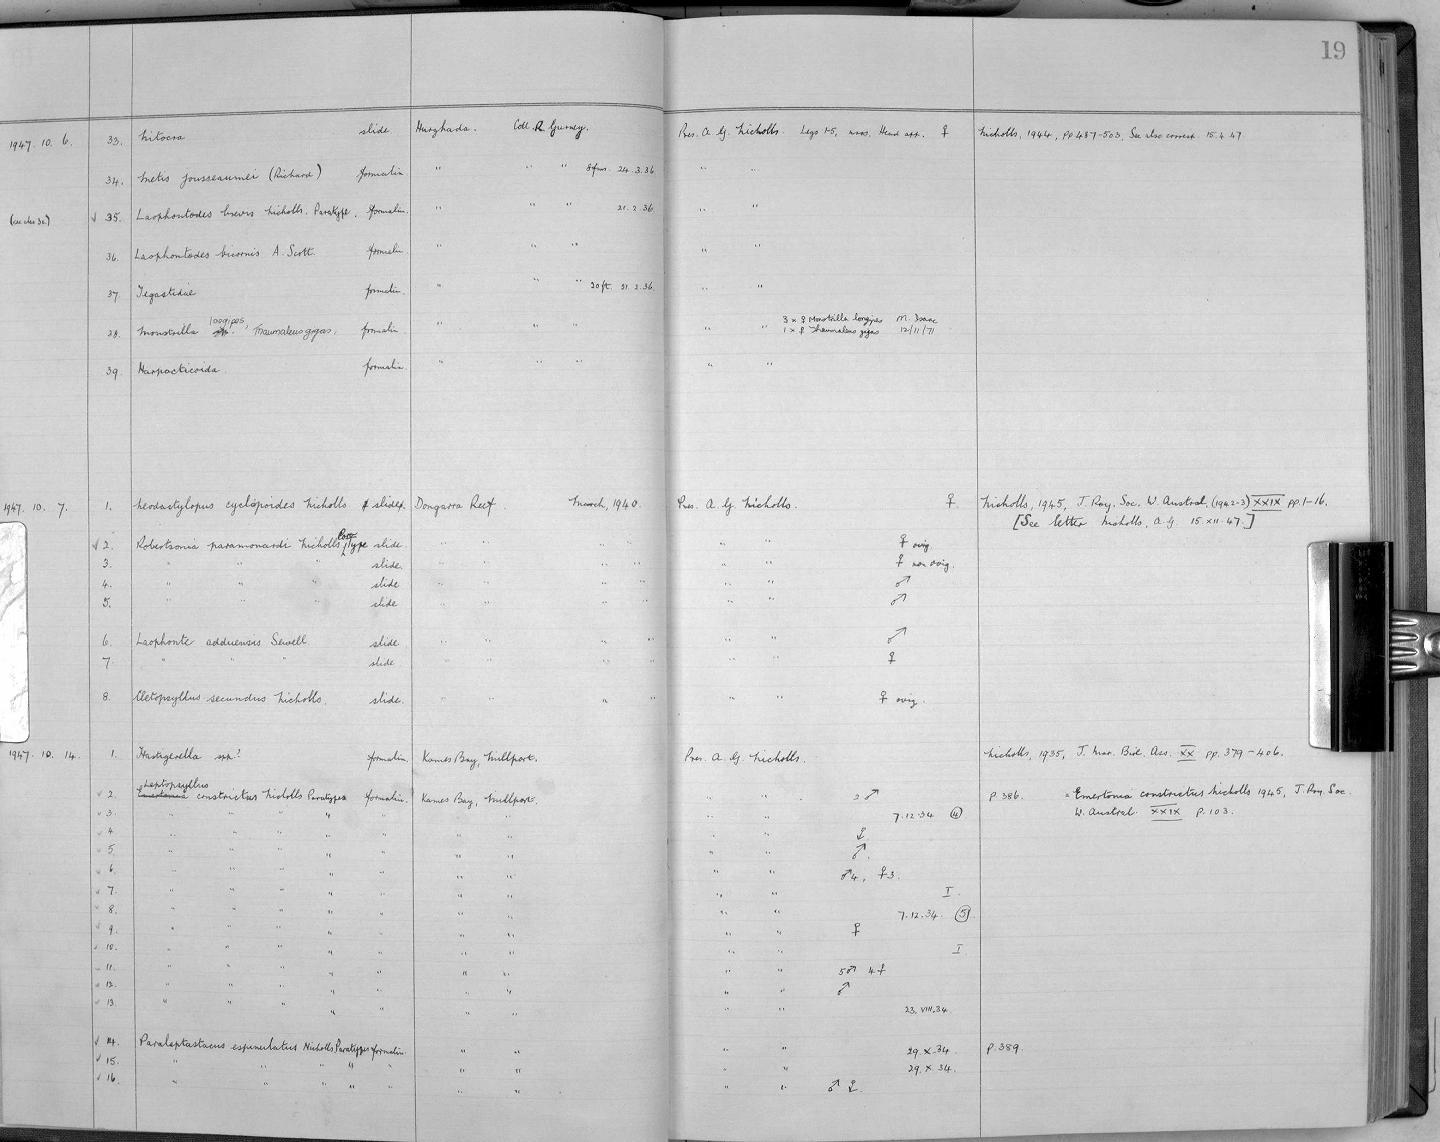 19
1947. 10. 6. 33. Nitocra slide Hurghada. Coll. R. Gurney. Pres. A. G. Nicholls. Legs 1-5, Head app. ♀ Nicholls, 1944, pp 487-503, See also corresp. 15.4.47
34. Metis jousseaumei (Richard) formalin " " " 24.3.36 " "
35. Laophontodes brevis Nicholls. Paratype. formalin " " " 21.2.36. " "
36. Laophontodes bicornis A. Scott. formalin. " " " " "
37. Tegastidae formalin. " " " 20ft. 21.2.36. " "
longipes, 3 x ♀ Monstrilla longipes M. Isaac
38. Monstrilla Thaumaleus gigas. formalin. " " " " " 1 x ♀ Thaumaleus gigas 12/11/71
39. Harpacticoida. formalin. " " " " "
1947. 10. 7. 1. Leodactylopus cyclopoides Nicholls slide Dongarra Reef March, 1940. Pres. A. G. Nicholls. ♀ Nicholls, 1945, J. Roy. Soc. W. Austral. (1942-3) XXIX pp. 1-16.
[See letter Nicholls, A.G. 15.XII.47.]
2. Robertsonia paramonardi Nicholls type slide. " " " " " " ♀ ovig.
3. " " " slide. " " " " " " ♀ non ovig.
4. " " " slide " " " " " " ♂
5. " " " slide " " " " " " ♂
6. Laophonte adduensis Sewell. slide " " " " " " ♂
7. " " " slide " " " " " " ♀
8. Cletopsyllus secundus Nicholls. slide. " " " " " " ♀ ovig.
1947. 10. 14. 1. Hastigerella spp? formalin. Kames Bay, Millport. Pres. A. G. Nicholls. Nicholls, 1935, J. Mar. Biol. Ass. XX pp. 379-406.
Leptopsyllus
2. Emertonia constrictus Nicholls Paratypes formalin. Kames Bay, Millport. " " 2 ♂ p. 386. = Emertonia constrictus Nicholls 1945, J. Roy. Soc.
3. " " " " " " " " " 7.12.34 (4) W. Austral. XXIX p. 103.
4. " " " " " " " " " ♀
5. " " " " " " " " " ♂.
6. " " " " " " " " " ♂4, ♀3.
7. " " " " " " " " " I.
8. " " " " " " " " " 7.12.34. (5)
9. " " " " " " " " " ♀
10. " " " " " " " " " I
11. " " " " " " " " " 5♂ 4♀
12. " " " " " " " " " ♂
13. " " " " " " " " " 23.VIII.34.
14. Paraleptastacus espinulatus Nicholls Paratypes formalin. " " " " 29.X.34. p. 389.
15. " " " " " " " " " 29.X.34.
16. " " " " " " " " " ♂ ♀.